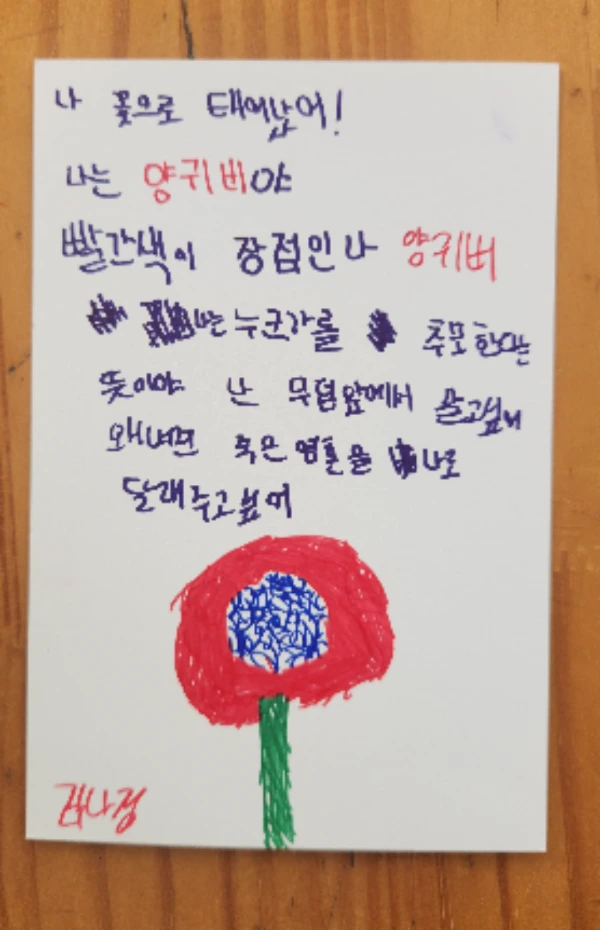 나 꽃으로 태어났어!
나는 양귀비야
빨간색이 장점인 나 양귀비
나는 누군가를 추모한다는
뜻이야 난 무덤앞에서 살고싶어
왜냐면 죽은 영혼을 나로
달래주고싶어
김나경